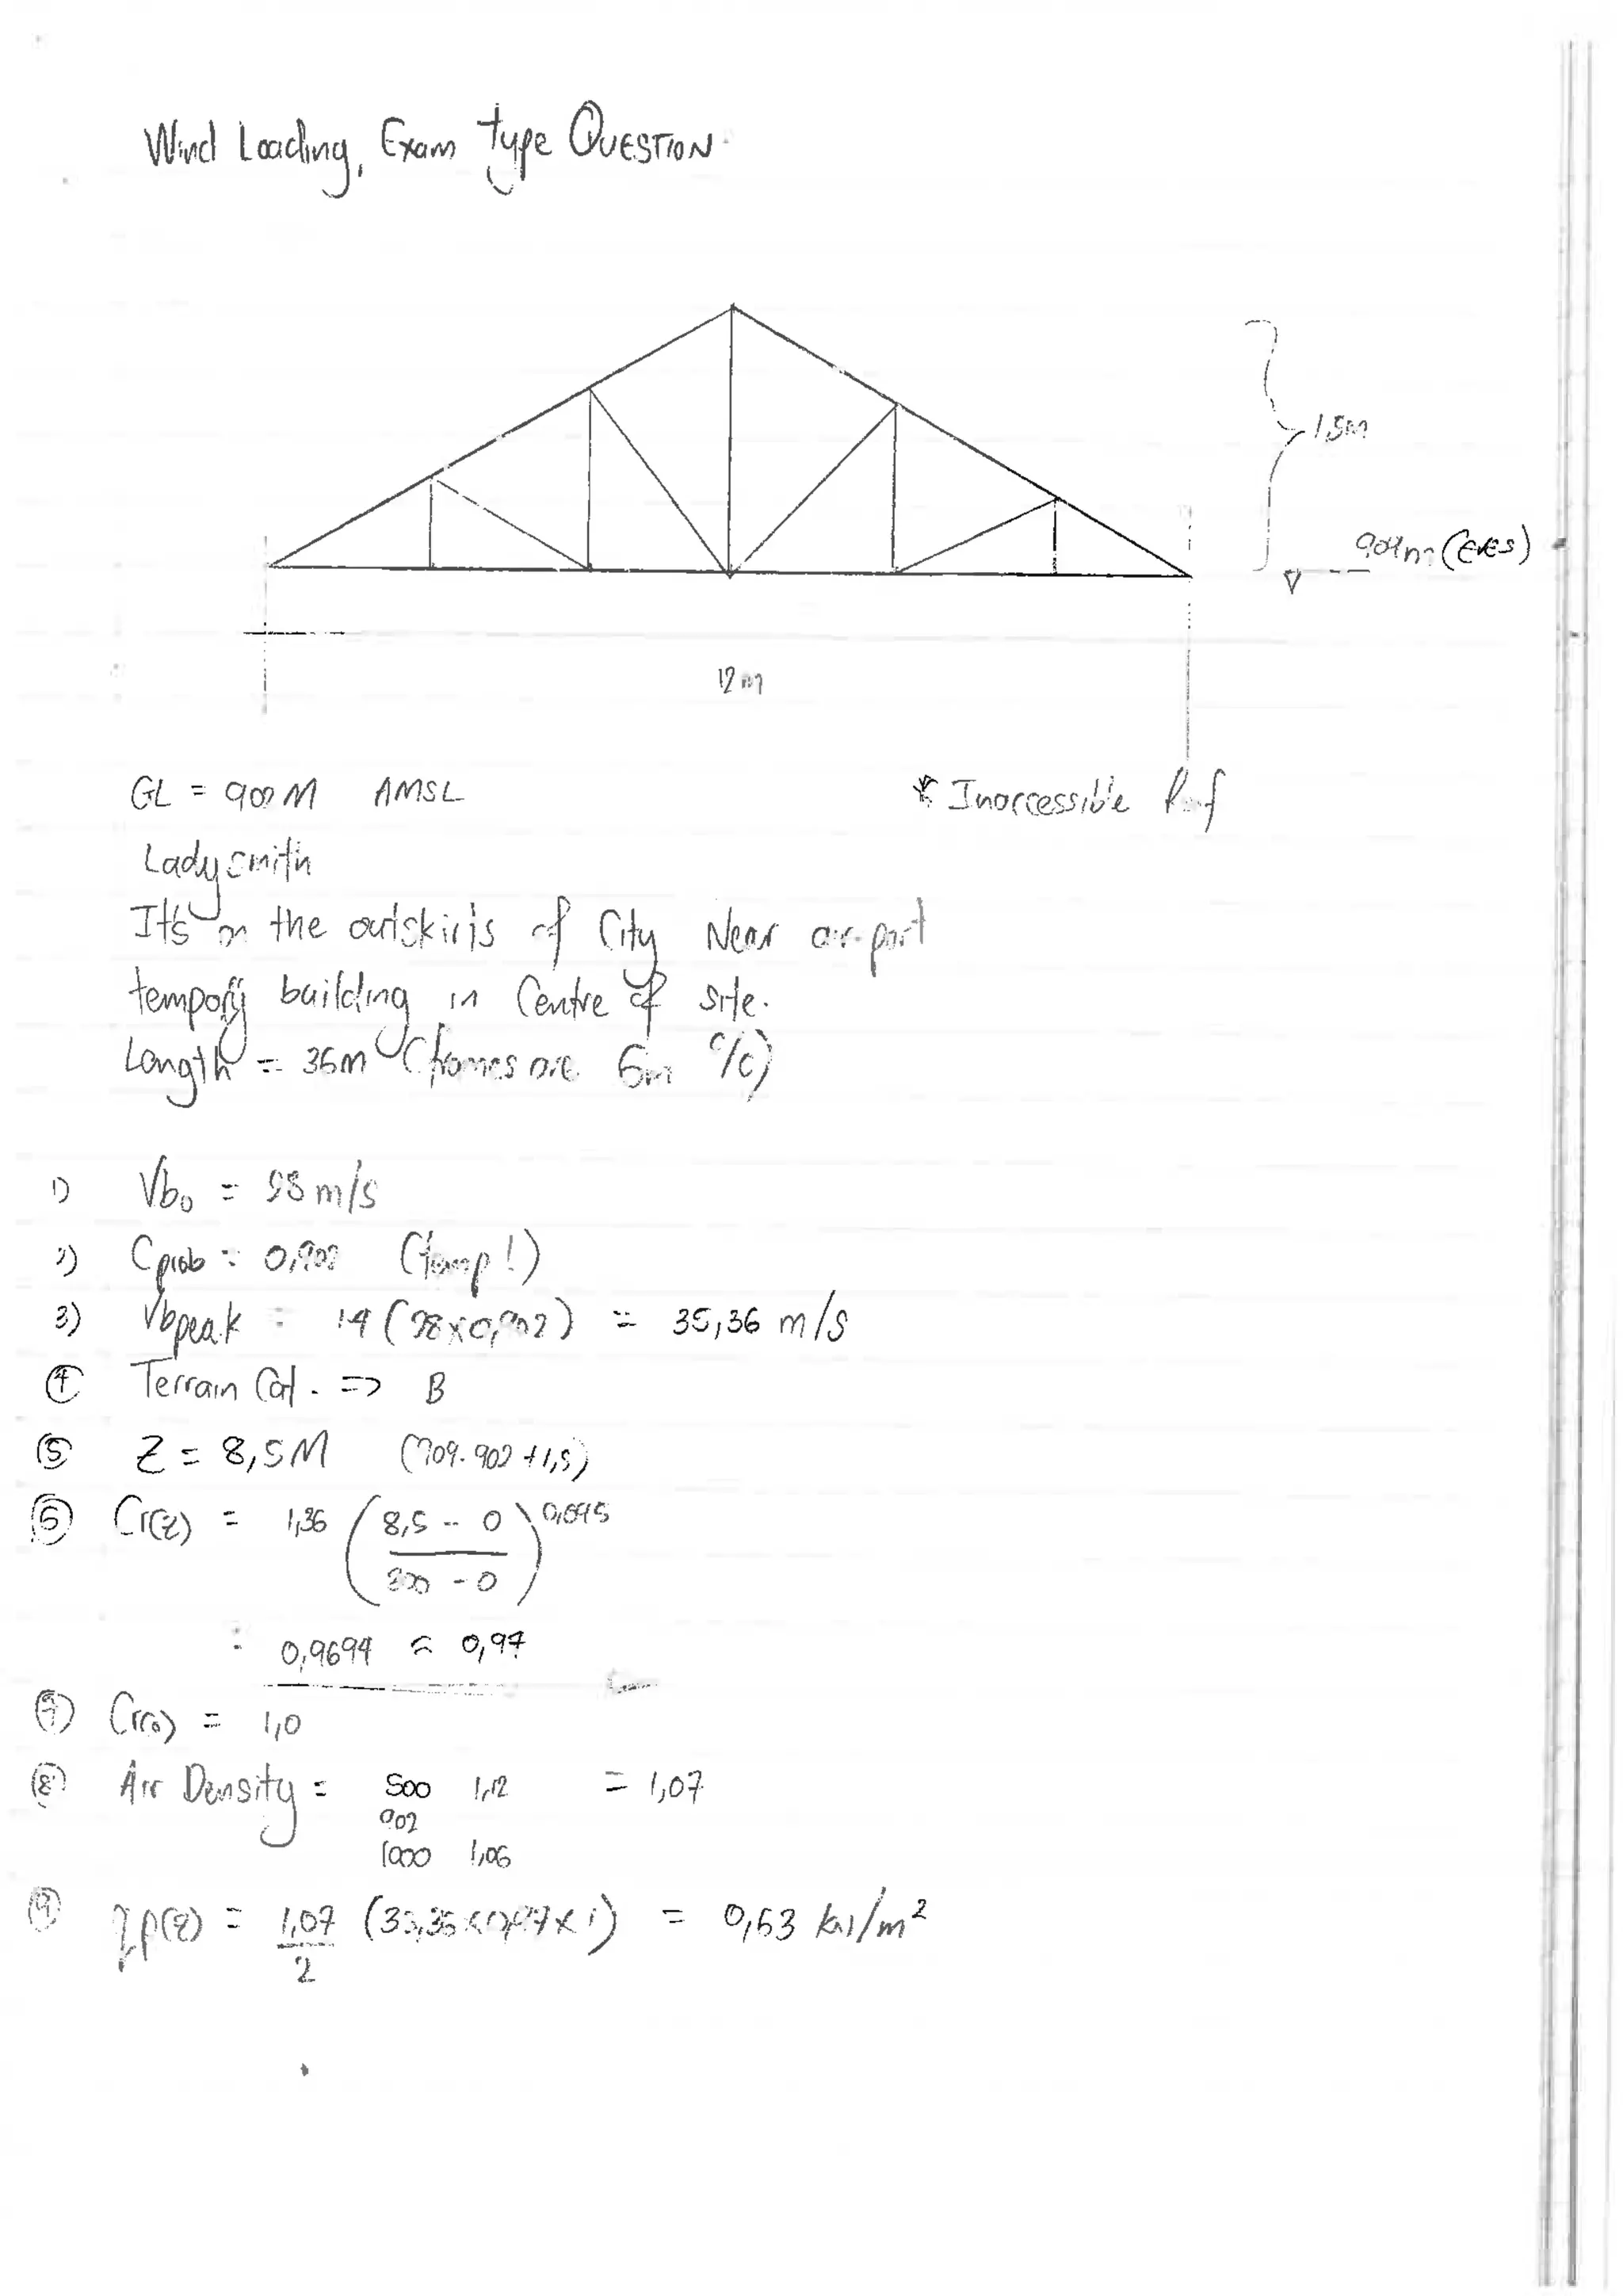 Wind Loading, Exam type QUESTION
1,5m
909m (EVES)
12m
GL = 902M AMSL
* Inaccessible Roof
Ladysmith
It's on the outskirts of City Near airport
tempory building in Centre of site.
Length = 36m (frames are 6m c/c)
1) Vb0 = 28 m/s
2) Cprob = 0,902 (temp!)
3) Vbpeak = 1.4 (28x0,902) = 35,36 m/s
④ Terrain Cat. => B
⑤ Z = 8,5M (909-902+1,5)
⑥ Cr(z) = 1,36 (8,5 - 0 / 300 - 0)^0,095
= 0,9694 ≈ 0,97
⑦ Cr(o) = 1,0
⑧ Air Density = 500 1,12 = 1,07
902
1000 1,06
⑨ qp(z) = 1,07/2 (35,36x0,97x1) = 0,63 kN/m²